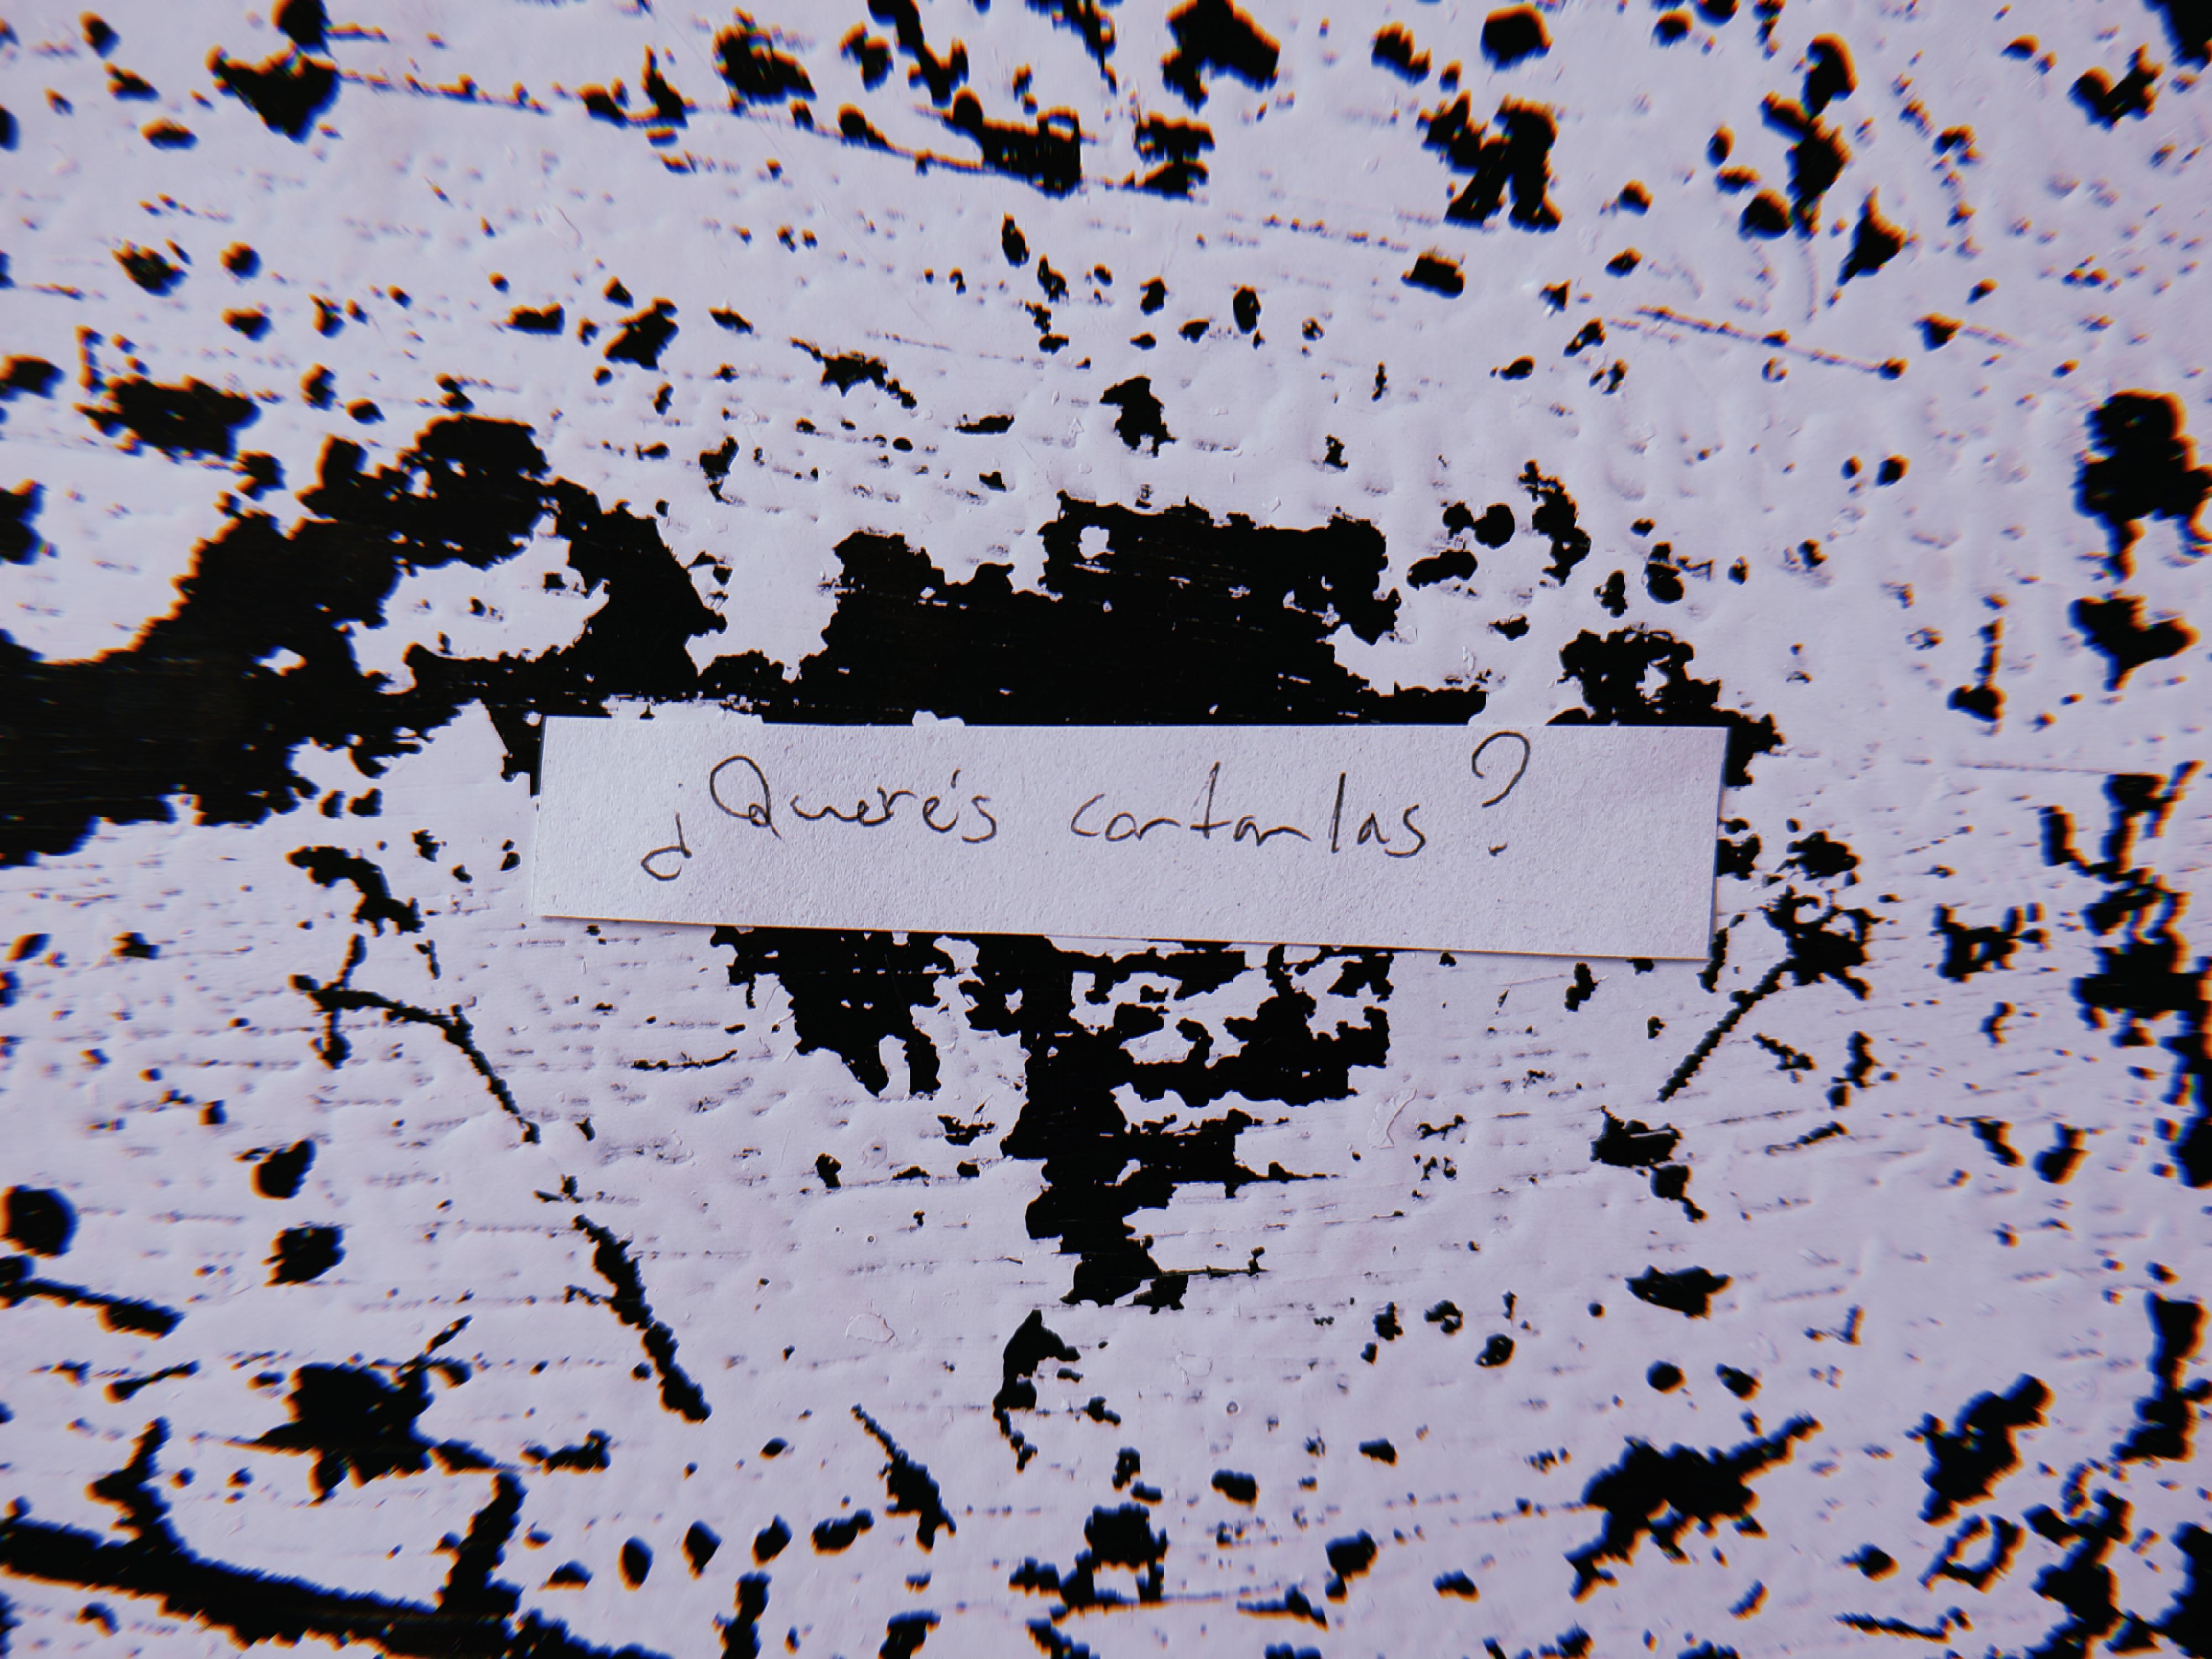 ¿Querés contarlas?